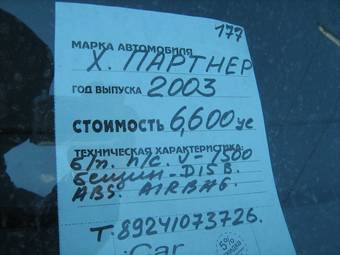 177
МАРКА АВТОМОБИЛЯ
Х. ПАРТНЕР
ГОД ВЫПУСКА 2003
СТОИМОСТЬ 6,600 уе
ТЕХНИЧЕСКАЯ ХАРАКТЕРИСТИКА:
б/п. п/с. V-1500
бензин-D15B.
ABS. AIRBAG.
Т. 89241073726.
Car
5%